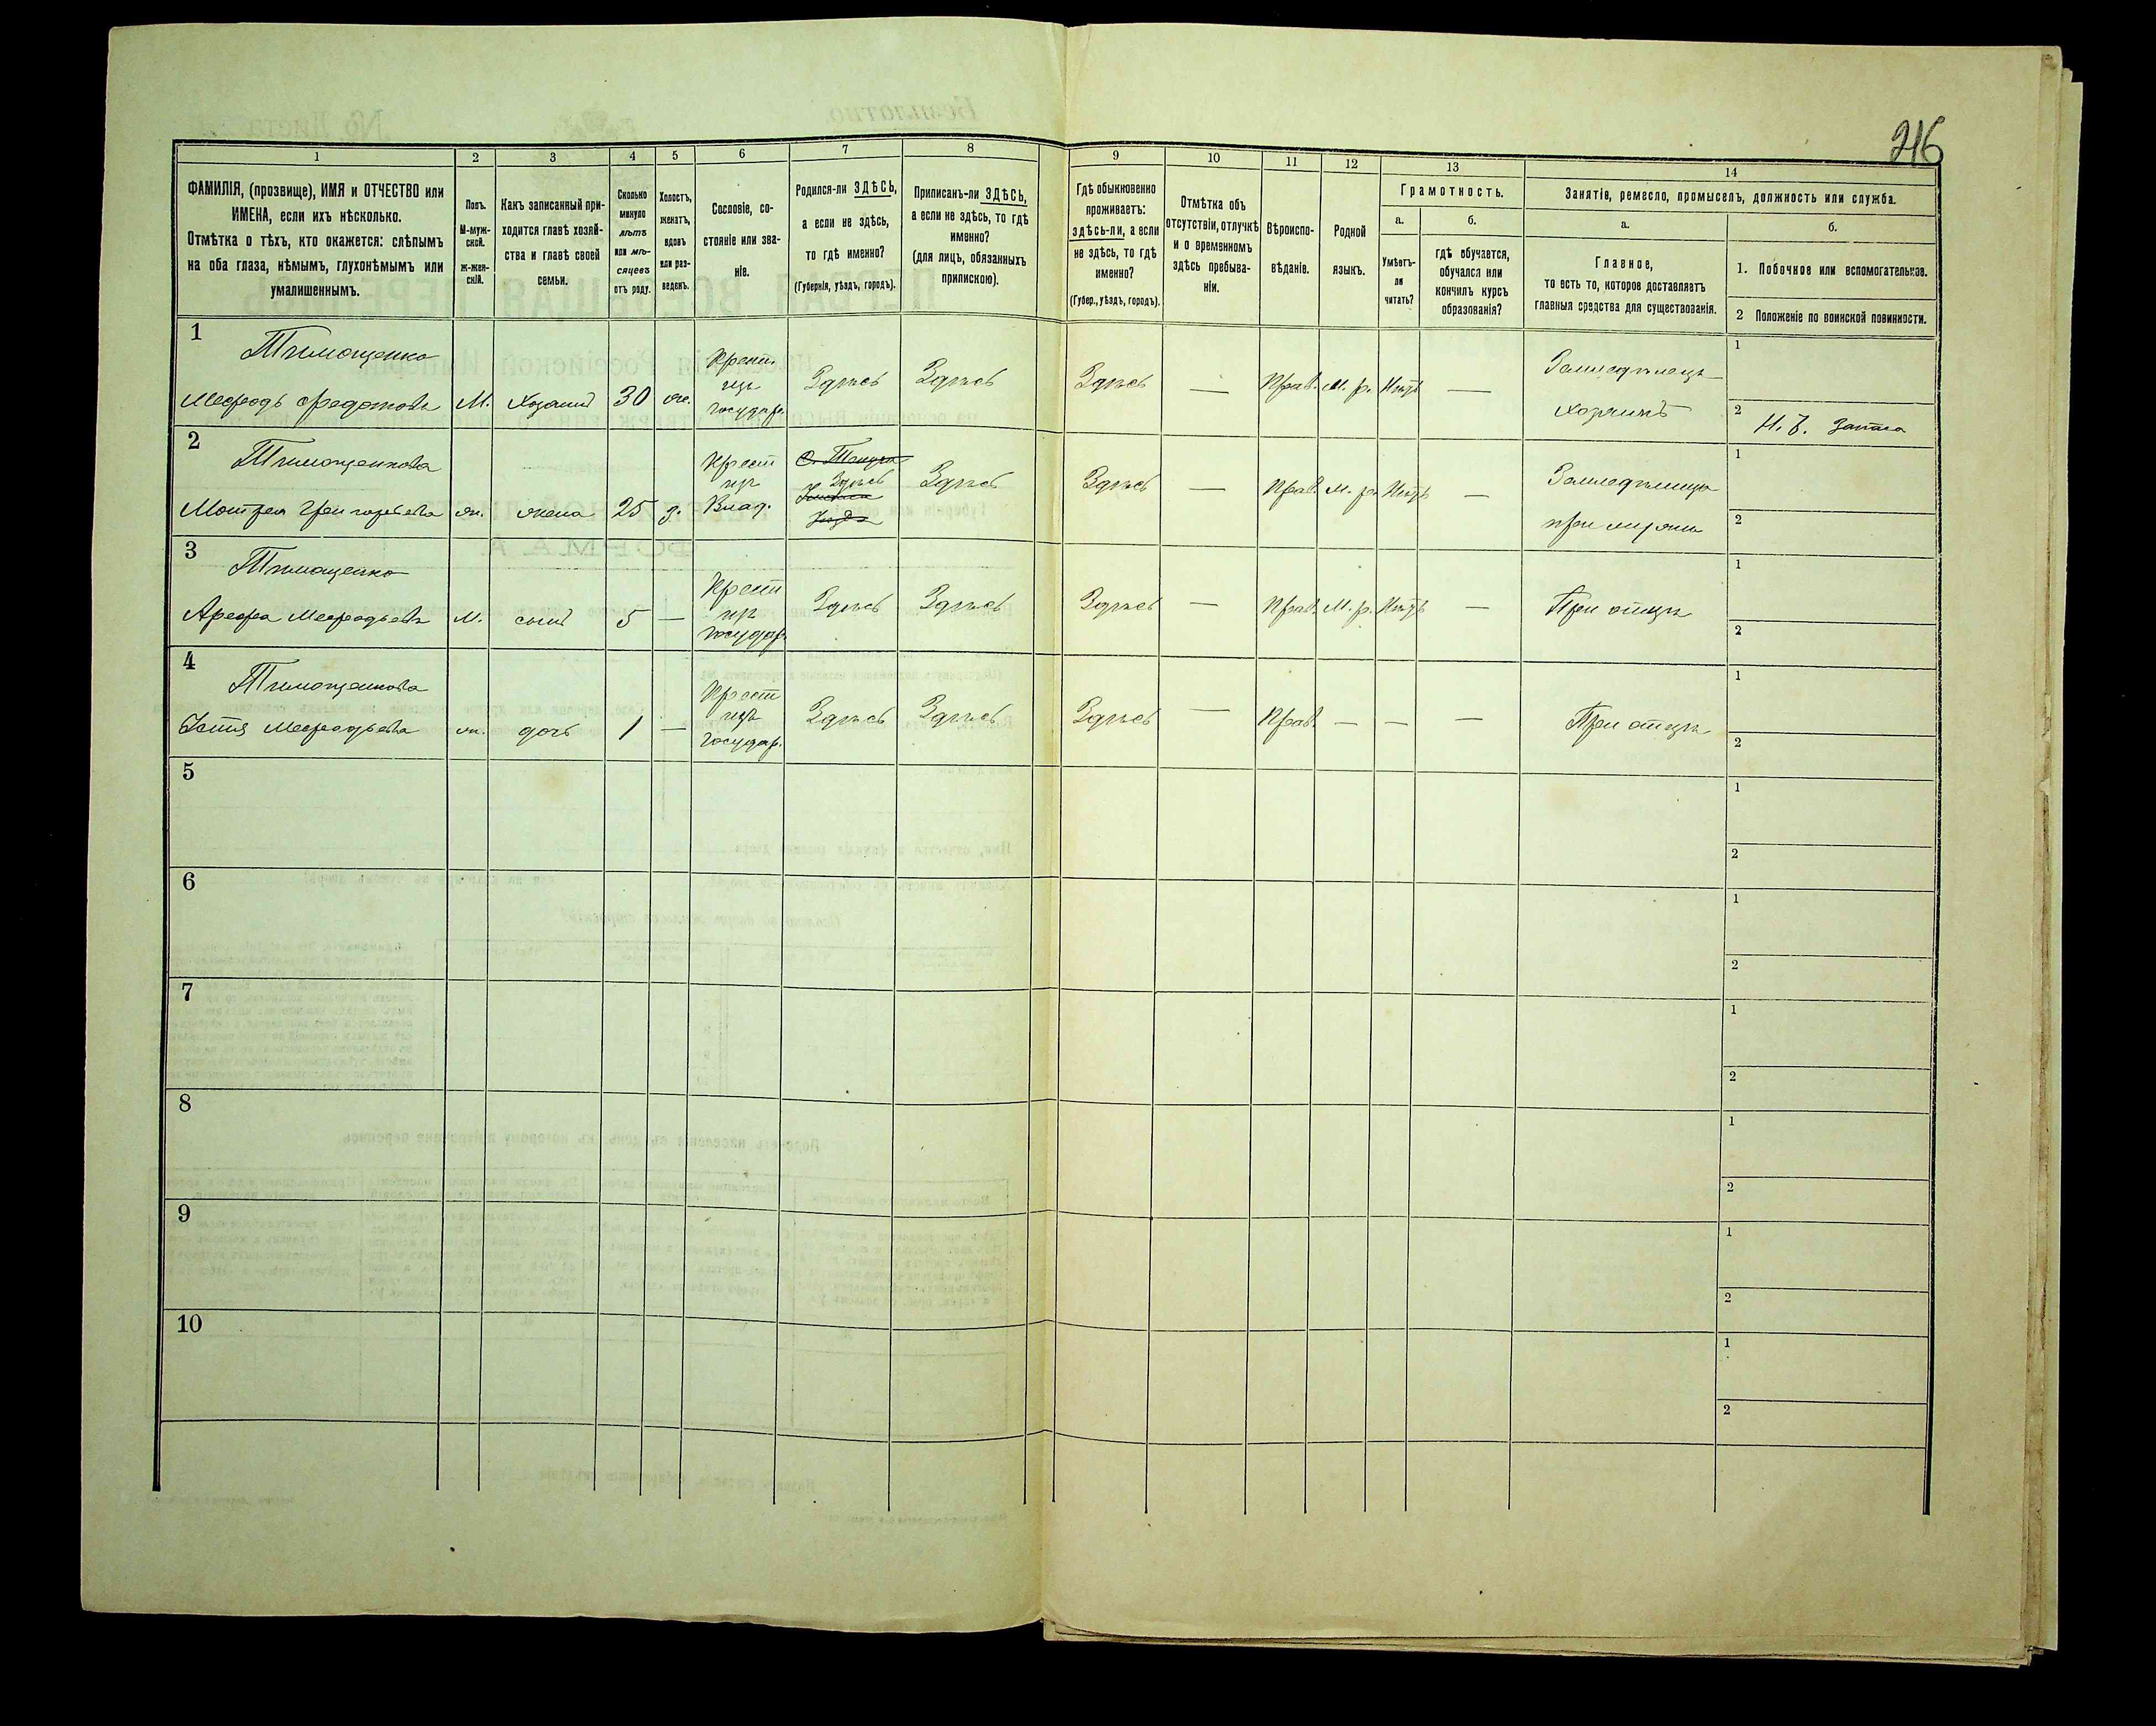 216
1
2
3
4
5
6
7
8
9
10
11
12
13
14
ФАМИЛІЯ, (прозвище), ИМЯ и ОТЧЕСТВО или
ИМЕНА, если ихъ нѣсколько.
Отмѣтка о тѣхъ, кто окажется: слѣпымъ
на оба глаза, нѣмымъ, глухонѣмымъ или
умалишеннымъ.
Полъ.
М-муж-
ской.
ж-жен-
скій.
Какъ записанный при-
ходится главѣ хозяй-
ства и главѣ своей
семьи.
Сколько
минуло
лѣтъ
или мѣ-
сяцевъ
отъ роду.
Холостъ,
женатъ,
вдовъ
или раз-
веденъ.
Сословіе, со-
стояніе или зва-
ніе.
Родился-ли ЗДѢСЬ,
а если не здѣсь,
то гдѣ именно?
(Губернія, уѣздъ, городъ).
Приписанъ-ли ЗДѢСЬ,
а если не здѣсь, то гдѣ
именно?
(для лицъ, обязанныхъ
припискою).
Гдѣ обыкновенно
проживаетъ:
здѣсь-ли, а если
не здѣсь, то гдѣ
именно?
(Губер., уѣздъ, городъ).
Отмѣтка объ
отсутствіи, отлучкѣ
и о временномъ
здѣсь пребыва-
ніи.
Вѣроиспо-
вѣданіе.
Родной
языкъ.
Грамотность.
а.
Умѣетъ-
ли
читать?
б.
гдѣ обучается,
обучался или
кончилъ курсъ
образованія?
Занятіе, ремесло, промыселъ, должность или служба.
а.
Главное,
то есть то, которое доставляетъ
главныя средства для существованія.
б.
1. Побочное или вспомогательное.
2 Положеніе по воинской повинности.
1
Тимощенко
Мефодь Федотовъ
М.
Хозяинъ
30
ж.
Крест.
изъ
государ.
Здѣсь
Здѣсь
Здѣсь
—
Прав.
М. р.
Нѣтъ
—
Земледѣлецъ
хозяинъ
1
2 Н. Ч. запаса
2
Тимощенкова
Мотрея Григорьева
ж.
жена
25
з.
Крест
изъ
Влад.
Здѣсь
Здѣсь
Здѣсь
—
Прав.
М. р.
Нѣтъ
—
Земледѣлица
при мужѣ
1
2
3
Тимощенко
Арефа Мефодьевъ
М.
сынъ
5
—
Крест
изъ
государ.
Здѣсь
Здѣсь
Здѣсь
—
Прав.
М. р.
Нѣтъ
—
При отцѣ
1
2
4
Тимощенкова
Устя Мефодьева
ж.
дочь
1
—
Крест
изъ
государ.
Здѣсь
Здѣсь
Здѣсь
—
Прав.
—
—
—
При отцѣ
1
2
5
1
2
6
1
2
7
1
2
8
1
2
9
1
2
10
1
2